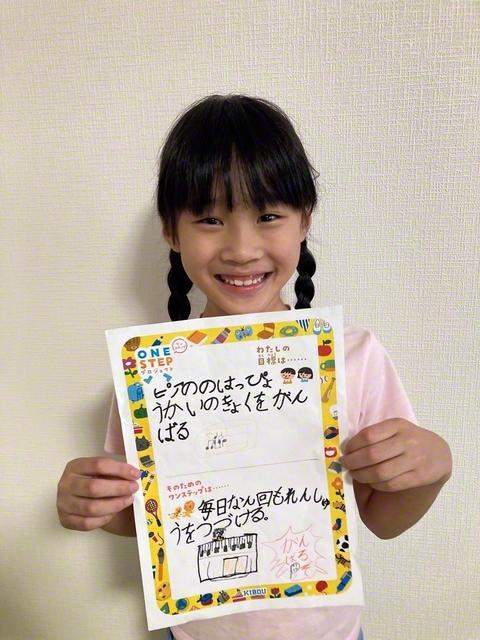 ONE
STEP
プロジェクト
わたしの
目標は……
ピアののはっぴょ
うかいのきょくをがん
ばる
そのための
ワンステップは……
毎日なん回もれんしゅ
うをつづける。
がん
ばるぞ
KIBOU